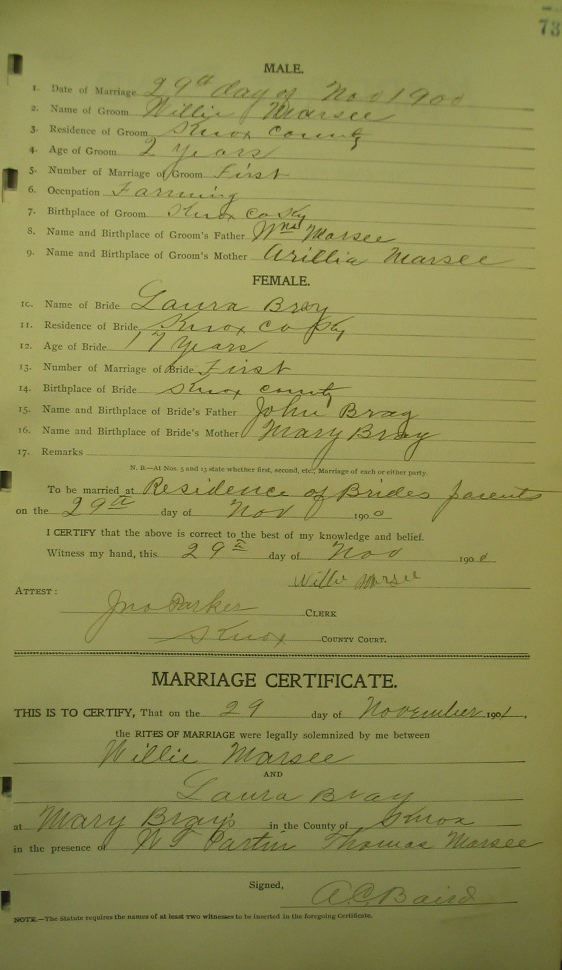 73
MALE.
1. Date of Marriage 29th day of Nov 1900
2. Name of Groom Willie Marsee
3. Residence of Groom Knox County
4. Age of Groom 2 years
5. Number of Marriage of Groom First
6. Occupation Farming
7. Birthplace of Groom Knox Co Ky
8. Name and Birthplace of Groom's Father Wm Marsee
9. Name and Birthplace of Groom's Mother Arillia Marsee
FEMALE.
10. Name of Bride Laura Bray
11. Residence of Bride Knox Co Ky
12. Age of Bride 17 years
13. Number of Marriage of Bride First
14. Birthplace of Bride Knox County
15. Name and Birthplace of Bride's Father John Bray
16. Name and Birthplace of Bride's Mother Mary Bray
17. Remarks
N. B.—At Nos. 5 and 13 state whether first, second, etc., Marriage of each or either party.
To be married at Residence of Brides parents
on the 29th day of Nov 1900
I CERTIFY that the above is correct to the best of my knowledge and belief.
Witness my hand, this 29th day of Nov 1900
Willie Marsee
ATTEST:
Jno Parker CLERK
Knox COUNTY COURT.
MARRIAGE CERTIFICATE.
THIS IS TO CERTIFY, That on the 29 day of November 1901.
the RITES OF MARRIAGE were legally solemnized by me between
Willie Marsee
AND
Laura Bray
at Mary Bray's in the County of Knox
in the presence of Partin Thomas Marsee
Signed,
A.C. Baird
NOTE.—The Statute requires the names of at least two witnesses to be inserted in the foregoing Certificate.